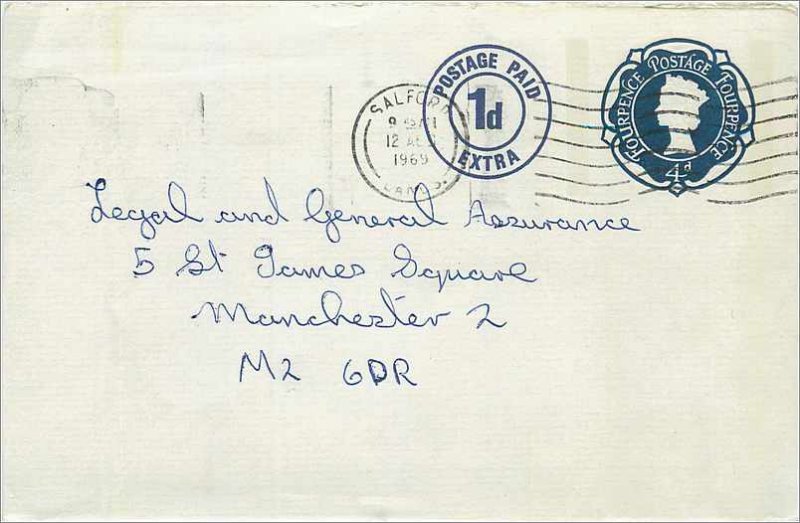 POSTAGE PAID
1d
EXTRA
SALFORD
12
1969
FOURPENCE POSTAGE FOURPENCE
4d
Legal and General Assurance
5 St James Square
Manchester 2
M2 6DR